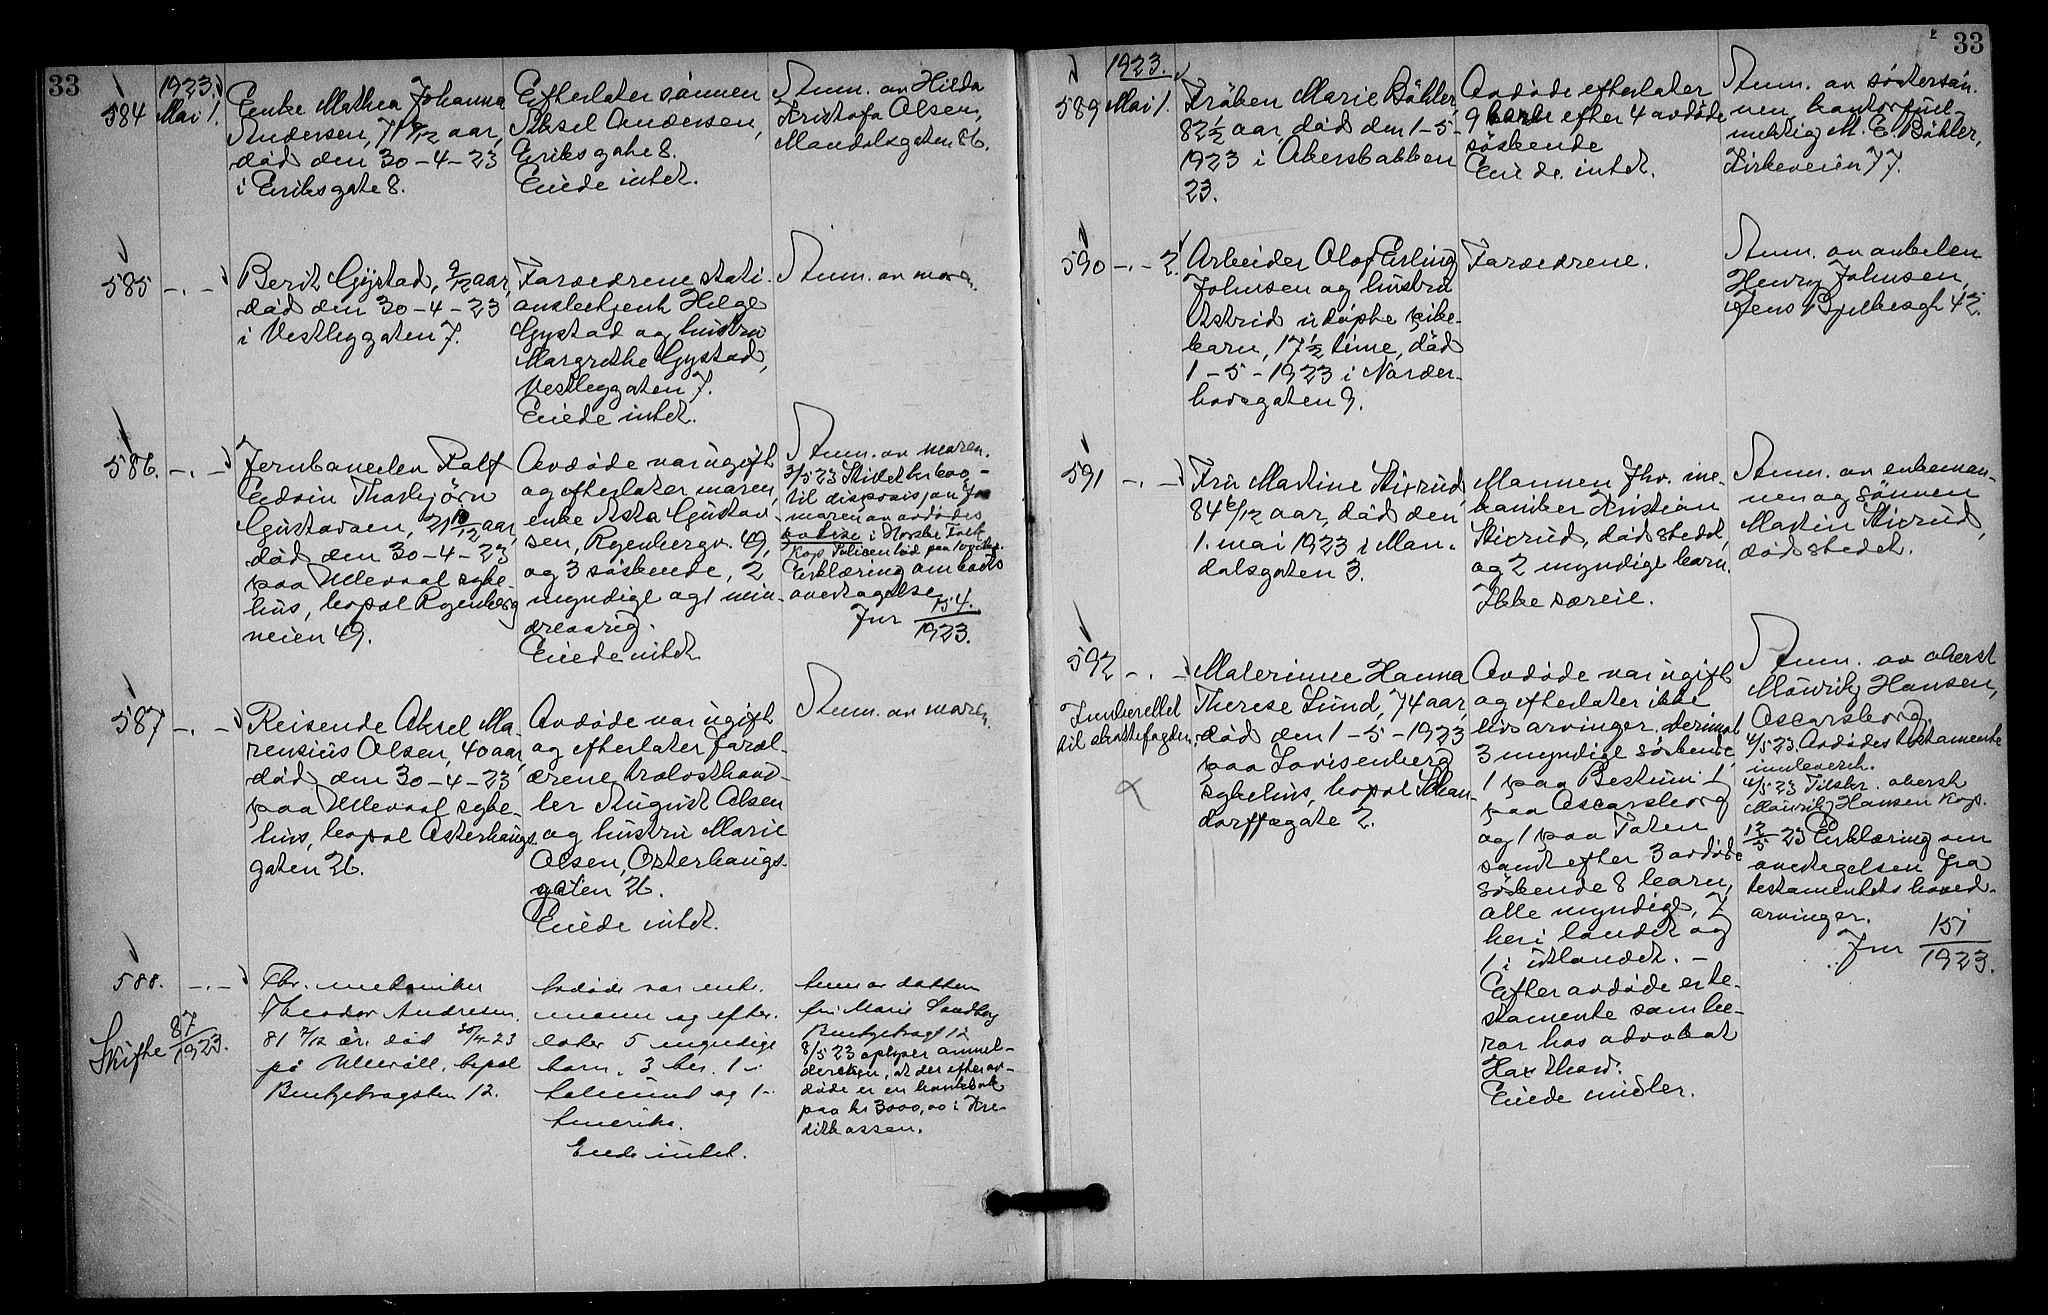 33
1923.
584
Mai 1.
Enke Mathea Johanna
Andersen, 71 9/12 aar,
død den 30-4-23
i Eriksgate 8.
Efterlater sønnen
Aksel Andersen,
Eriksgate 8.
Eiede intet.
Anm. av Hilda
Kristofa Olsen,
Mandalsgaten 8b.
585
-"-
Berit Gystad, 9/12 aar,
død den 30-4-23
i Vestbygaten 7.
Foreldrene stati-
onsbetjent Helge
Gystad og hustru
Margrethe Gystad,
Vestbygaten 7.
Eiede intet.
Anm. av moren.
586.
-"-
Jernbaneelev Ralf
Edvin Thorbjørn
Gustavsen, 21 10/12 aar,
død den 30-4-23
paa Ullevaal syke-
hus, bopæl Ryenberg
veien 49.
Avdøde var ugift
og efterlater moren,
enke Asta Gustav-
sen, Ryenbergv. 49,
og 3 søskende, 2
myndige og 1 min-
dreaarig.
Eiede intet
Anm. av moren.
3/5 23 Stillet kr 600,-
til disposisjon for
moren av avdødes
i Norske Folk
Erklæring om boets
overtagelse
Jnr 154./1923.
587
-"-
Reisende Aksel Ma-
rensius Olsen, 40 aar,
død den 30-4-23
paa Ullevaal syke-
hus, bopæl Østerhaugs-
gaten 26.
Avdøde var ugift
og efterlater foræl-
drene trælasthand-
ler August Olsen
og hustru Marie
Olsen, Østerhaugs-
gaten 26.
Eiede intet.
Anm. av moren.
588.
-"-
Skifte 87/1923.
Fhv. mekaniker
Theodor Andresen,
81 7/12 år. død 30/4-23
på Ullevåll, bopæl
Bentsebrogaten 12.
Avdøde var enke-
mann og efter-
later 5 myndige
barn, 3 her, 1 i
og 1 i
Amerika.
Eiede intet.
Anm av datter
fru Marie Sandberg
Bentsebrogt 12
8/5 23 oplyser anmel-
dersken, at der efter av-
døde er en bankbok
paa kr 3000,00 i Kre-
ditkassen.
33
1923.
589
Mai 1.
Frøken Marie Bøhler
82 1/2 aar, død den 1-5-
1923 i Akersbakken
23.
Avdøde efterlater
9 barn efter 4 avdøde
søskende
Eiede intet.
Anm. av søstersøn-
nen, kontorfuld-
mektig M. E. Bøhler,
Kirkeveien 77.
590
-"- 2.
Arbeider Olof Erling
Johnsen og hustru
Astrid udøpte pike-
barn, 17 1/2 time, død
1-5-1923 i Norder-
hovsgaten 9.
Foreldrene.
Anm. av onkelen
Henry Johnsen,
Jens Bjelkesgt 42.
591
-"-
Fru Martine Stixrud,
84 6/12 aar, død den
1. mai 1923 i Man-
dalsgaten 3.
Mannen fhv. me-
kaniker Kristian
Stixrud, dødstedet,
og 2 myndige barn.
Ikke særeie.
Anm. av enkeman-
nen og sønnen
Martin Stixrud,
dødstedet.
592
-"-
Innberettet
til skattefogden.
Malerinne Hanna
Therese Lund, 74 aar,
død den 1-5-1923
paa Lovisenberg
sykehus, bopæl Schan-
dorffsgate 2.
Avdøde var ugift
og efterlater ikke
livsarvinger, derimot
3 myndige søskende,
1 paa Bestum, 1
paa Oscarsborg
og 1 paa Toten
samt efter 3 avdøde
søskende 8 barn,
alle myndige, 7
her i landet og
1 i utlandet. -
Efter avdøde er te-
stamente som be-
ror hos advokat
Haxthow.
Eiede midler.
Anm. av oberst
Mauritz Hansen,
Oscarsborg.
4/5 23 Avdødes testamente
innleveret.
4/5 23 Tilskr. oberst
Mauritz Hansen
12/5 23 Erklæring om
overtagelsen fra
testamentets hoved-
arvinger.
Jnr 151/1923.